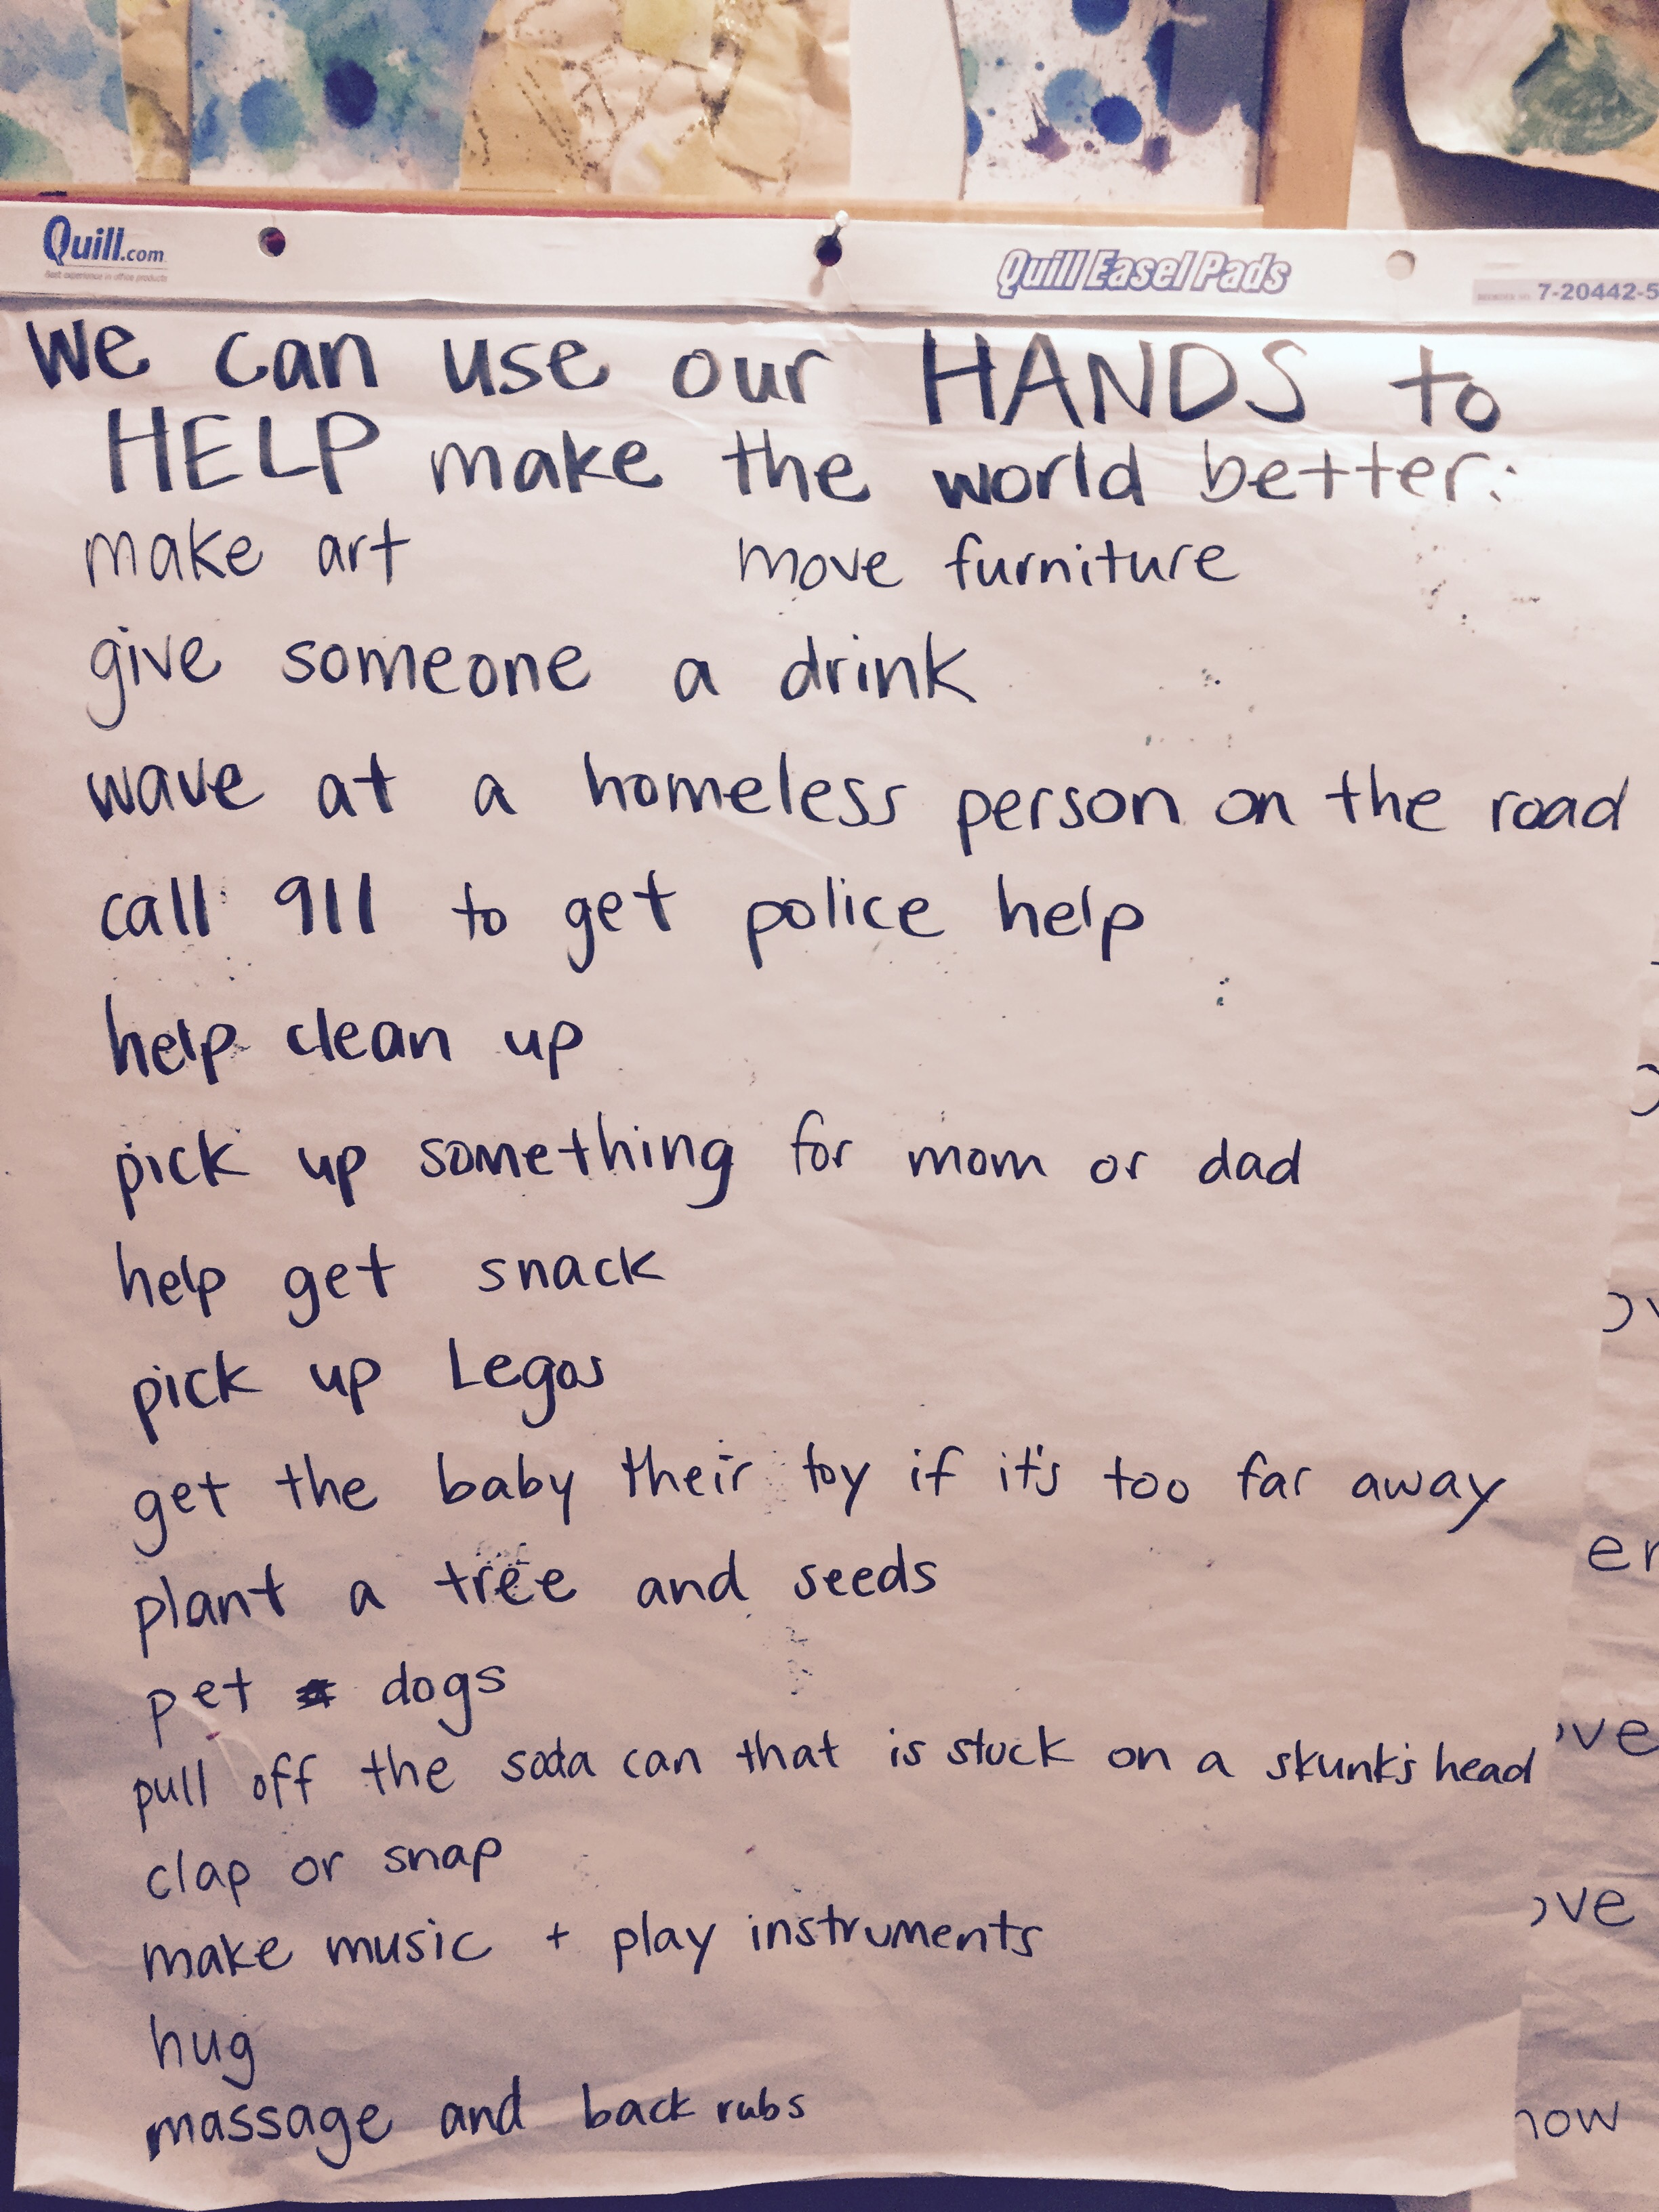 Quill.com
Quill Easel Pads
7-20442-5
we can use our HANDS to
HELP make the world better:
make art move furniture
give someone a drink
wave at a homeless person on the road
call 911 to get police help
help clean up
pick up something for mom or dad
help get snack
pick up Legos
get the baby their toy if it's too far away
plant a tree and seeds
pet dogs
pull off the soda can that is stuck on a skunk's head
clap or snap
make music + play instruments
hug
massage and back rubs
er
ove
ove
now